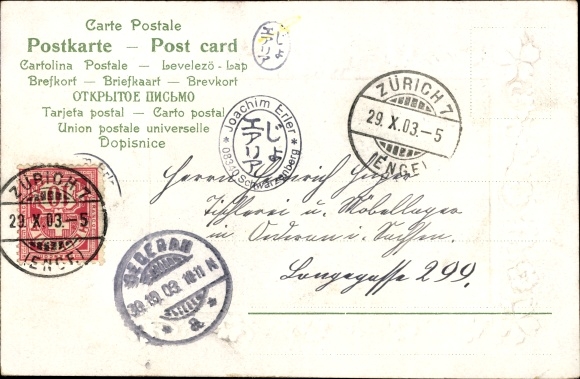 Carte Postale
Postkarte — Post card
Cartolina Postale — Levelezö-Lap
Brefkort — Briefkaart — Brevkort
ОТКРЫТОЕ ПИСЬМО
Tarjeta postal — Carto postal
Union postale universelle
Dopisnice
ZÜRICH 7
29.X.03.–5
(ENGE)
* Joachim Erler *
08340 Schwarzenberg
ZÜRICH 7
29.X.03.–5
(ENGE)
Herrn Heinrich
Tischlerei u. Möbellager
in Oederan i. Sachsen.
Langegasse 299.
OEDERAN
30.10.03. 10-11 V.
* a *